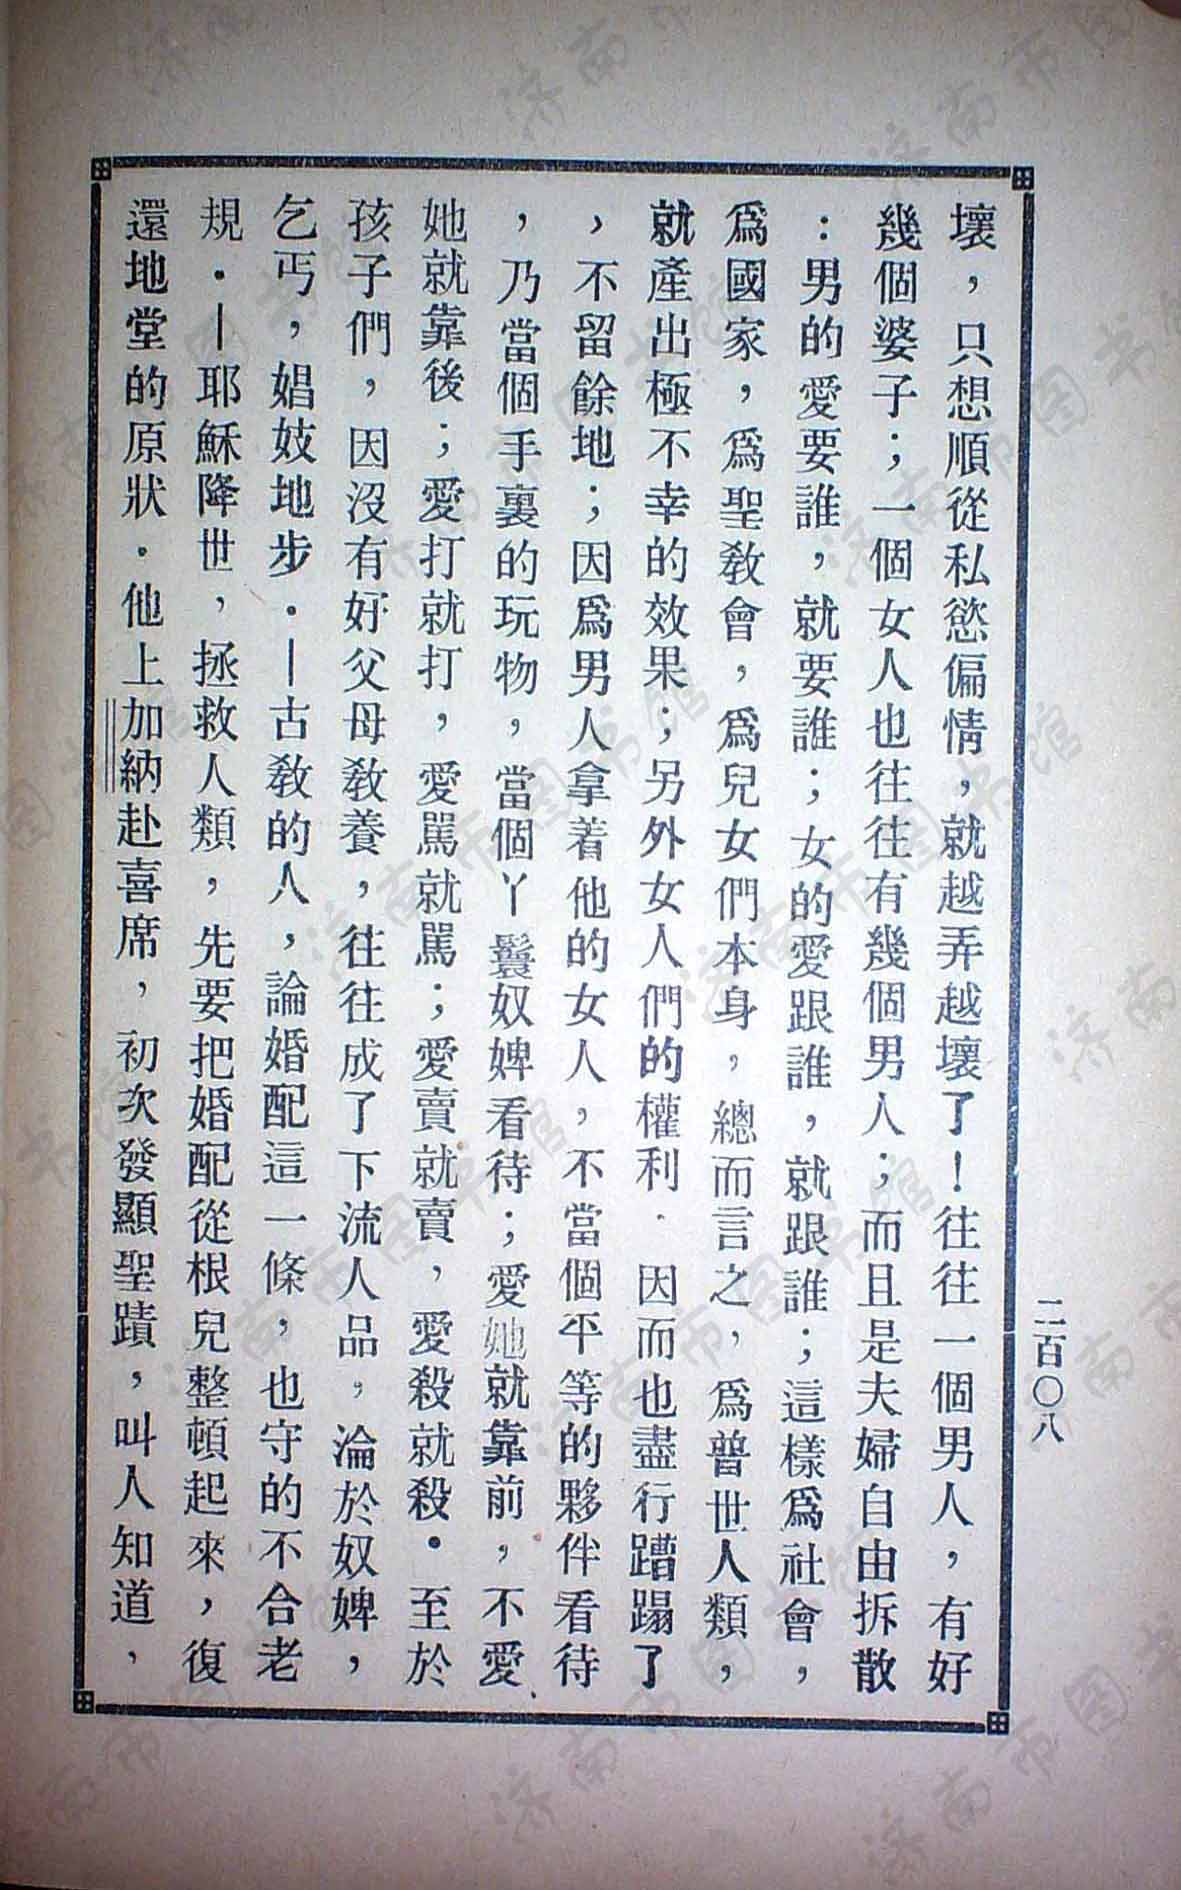 二百〇八
壞，只想順從私慾偏情，就越弄越壞了！往往一個男人，有好
幾個婆子；一個女人也往往有幾個男人；而且是夫婦自由拆散
：男的愛要誰，就要誰；女的愛跟誰，就跟誰；這樣爲社會，
爲國家，爲聖教會，爲兒女們本身，總而言之，爲普世人類，
就產出極不幸的效果；另外女人們的權利．因而也盡行蹧蹋了
，不留餘地；因爲男人拿着他的女人，不當個平等的夥伴看待
，乃當個手裏的玩物，當個丫鬟奴婢看待；愛她就靠前，不愛
她就靠後；愛打就打，愛駡就駡；愛賣就賣，愛殺就殺．至於
孩子們，因沒有好父母教養，往往成了下流人品，淪於奴婢，
乞丐，娼妓地步．—古教的人，論婚配這一條，也守的不合老
規．—耶穌降世，拯救人類，先要把婚配從根兒整頓起來，復
還地堂的原狀．他上加納赴喜席，初次發顯聖蹟，叫人知道，
济南市图书馆